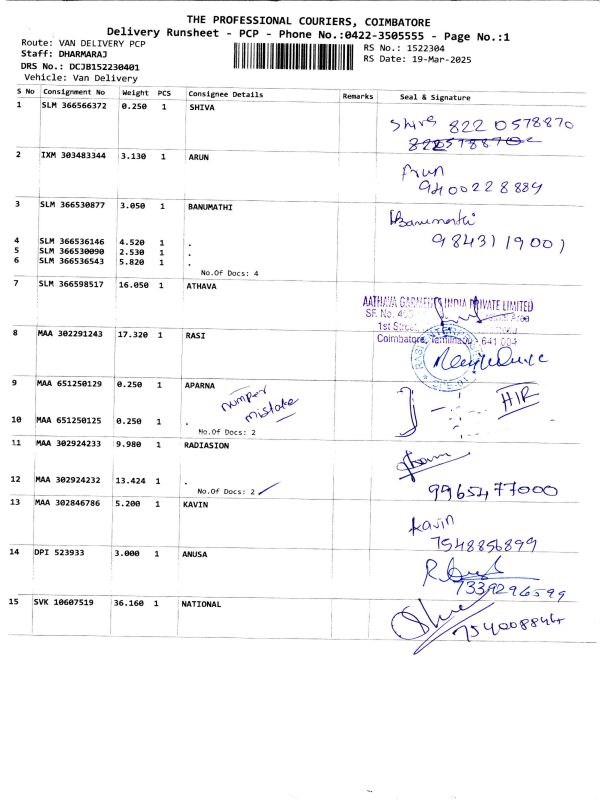 THE PROFESSIONAL COURIERS, COIMBATORE
Delivery Runsheet - PCP - Phone No.:0422-3505555 - Page No.:1
Route: VAN DELIVERY PCP
RS No.: 1522304
Staff: DHARMARAJ
RS Date: 19-Mar-2025
DRS No.: DCJB152230401
Vehicle: Van Delivery
S No Consignment No Weight PCS Consignee Details Remarks Seal & Signature
1 SLM 366566372 0.250 1 SHIVA
Shiva 822 0578870
2 IXM 303483344 3.130 1 ARUN
Arun
9400228889
3 SLM 366530877 3.050 1 BANUMATHI
Banumathi
9843119001
4 SLM 366536146 4.520 1 .
5 SLM 366530090 2.530 1 .
6 SLM 366536543 5.820 1 .
No.Of Docs: 4
7 SLM 366598517 16.050 1 ATHAVA
AATHAVA GARMENTS INDIA PRIVATE LIMITED
SF. No. Area
1st Street,
Coimbatore, Tamilnadu - 641 004
8 MAA 302291243 17.320 1 RASI
9 MAA 651250129 0.250 1 APARNA
number
mistake
H/R
10 MAA 651250125 0.250 1 .
No.Of Docs: 2
11 MAA 302924233 9.980 1 RADIASION
12 MAA 302924232 13.424 1 .
No.Of Docs: 2
9965477000
13 MAA 302846786 5.200 1 KAVIN
Kavin
7548856899
14 DPI 523933 3.000 1 ANUSA
7339296599
15 SVK 10607519 36.160 1 NATIONAL
754008844